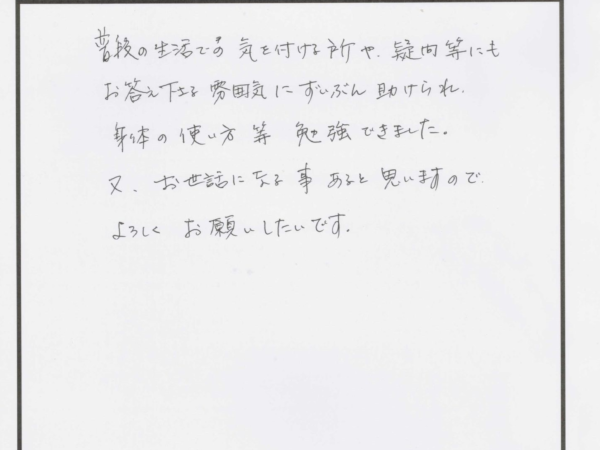 普段の生活での気を付ける所や、疑問等にも
お答え下さる雰囲気にずいぶん助けられ、
身体の使い方等 勉強できました。
又、お世話になる事あると思いますので、
よろしくお願いしたいです。